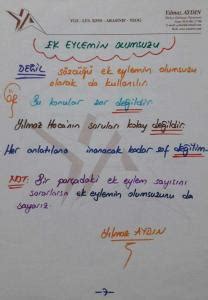 YGS - LYS, KPSS - AKADEMİ - YDUS
Yılmaz AYDIN
EK EYLEMİN OLUMSUZU
DEĞİL sözcüğü ek eylemin olumsuzu
olarak da kullanılır.
ÖR
Bu konular zor değildir.
Yılmaz Hoca'nın soruları kolay değildir.
Her anlatılana inanacak kadar saf değilim.
NOT: Bir parçadaki ek eylem sayısını
sorarlarsa ek eylemin olumsuzunu da
sayarız.
Yılmaz AYDIN
-7-